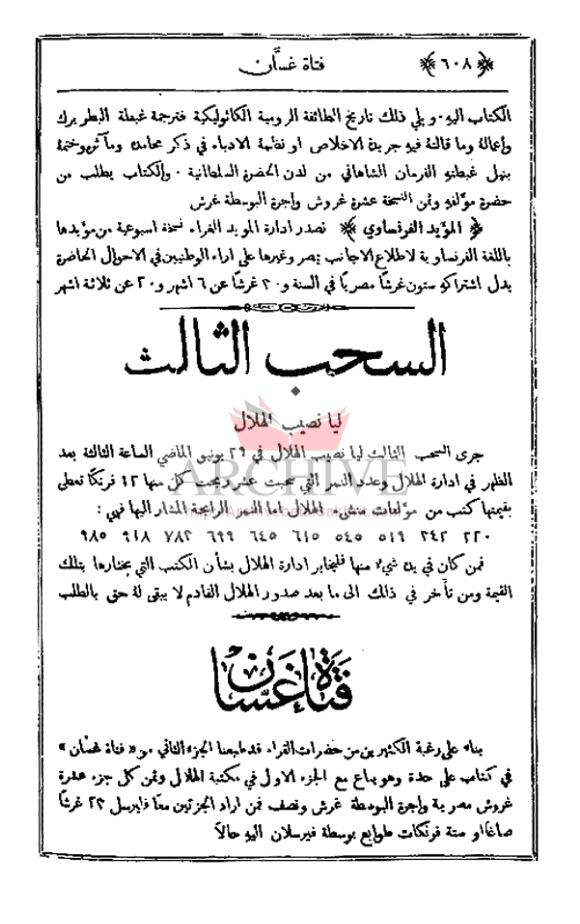 ﴿ ٦٠٨ ﴾ فتاة غسان
الكتاب اليه . ويلي ذلك تاريخ الطائفة الرومية الكاثوليكية فترجمة غبطة البطريرك
واعماله وما قالته فيه جريدة الاخلاص او نظمه الادباء في ذكر محامده ومآثره وختمه
بنيل غبطته الفرمان الشاهاني من لدن الحضرة السلطانية . والكتاب يطلب من
حضرة مؤلفه وثمن النسخة عشرة غروش واجرة البوسطة غرش
﴿ المؤيد الفرنساوي ﴾ تصدر ادارة المويد الغراء نسخة اسبوعية من مؤيدها
باللغة الفرنساوية لاطلاع الاجانب بمصر وغيرها على اراء الوطنيين في الاحوال الحاضرة
بدل اشتراكه ستون غرشًا مصريًا في السنة و٤٠ غرشًا عن ٦ اشهر و٢٠ عن ثلاثة اشهر
السحب الثالث
ليا نصيب الهلال
جرى السحب الثالث ليا نصيب الهلال في ٢٩ يونيو الماضي الساعة الثالثة بعد
الظهر في ادارة الهلال وعدد النمر التي سحبت عشر ربحت كل منها ١٢ فرنكًا تعطى
بقيمتها كتب من مؤلفات منشىء الهلال اما النمر الرابحة المشار اليها فهي :
٢٢٠ ٢٤٢ ٥١٩ ٥٤٥ ٦١٥ ٦٤٥ ٦٩٩ ٧٨٢ ٩١٨ ٩٨٥
فمن كان في يده شيء منها فليخابر ادارة الهلال بشأن الكتب التي يختارها بتلك
القيمة ومن تأخر في ذلك الى ما بعد صدور الهلال القادم لا يبقى له حق بالطلب
فتاة غسان
بناء على رغبة الكثيرين من حضرات القراء قد طبعنا الجزء الثاني من « فتاة غسان »
في كتاب على حدة وهو يباع مع الجزء الاول في مكتبة الهلال وثمن كل جزء عشرة
غروش مصرية واجرة البوسطة غرش ونصف فمن اراد الجزئين معًا فليرسل ٢٣ غرشًا
صاغًا او ستة فرنكات طوابع بوسطة فيرسلان اليه حالاً
ARCHIVE